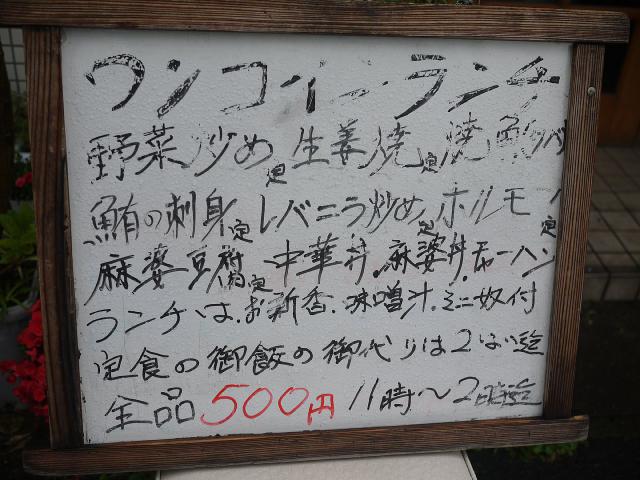 ワンコインランチ
野菜炒め定 生姜焼定 焼魚
鮪の刺身定 レバニラ炒め定 ホルモン定
麻婆豆腐定 中華丼.麻婆丼.チャーハン
ランチは.お新香.味噌汁.ミニ奴付
定食の御飯の御代りは2はい迄
全品500円 11時〜2時迄